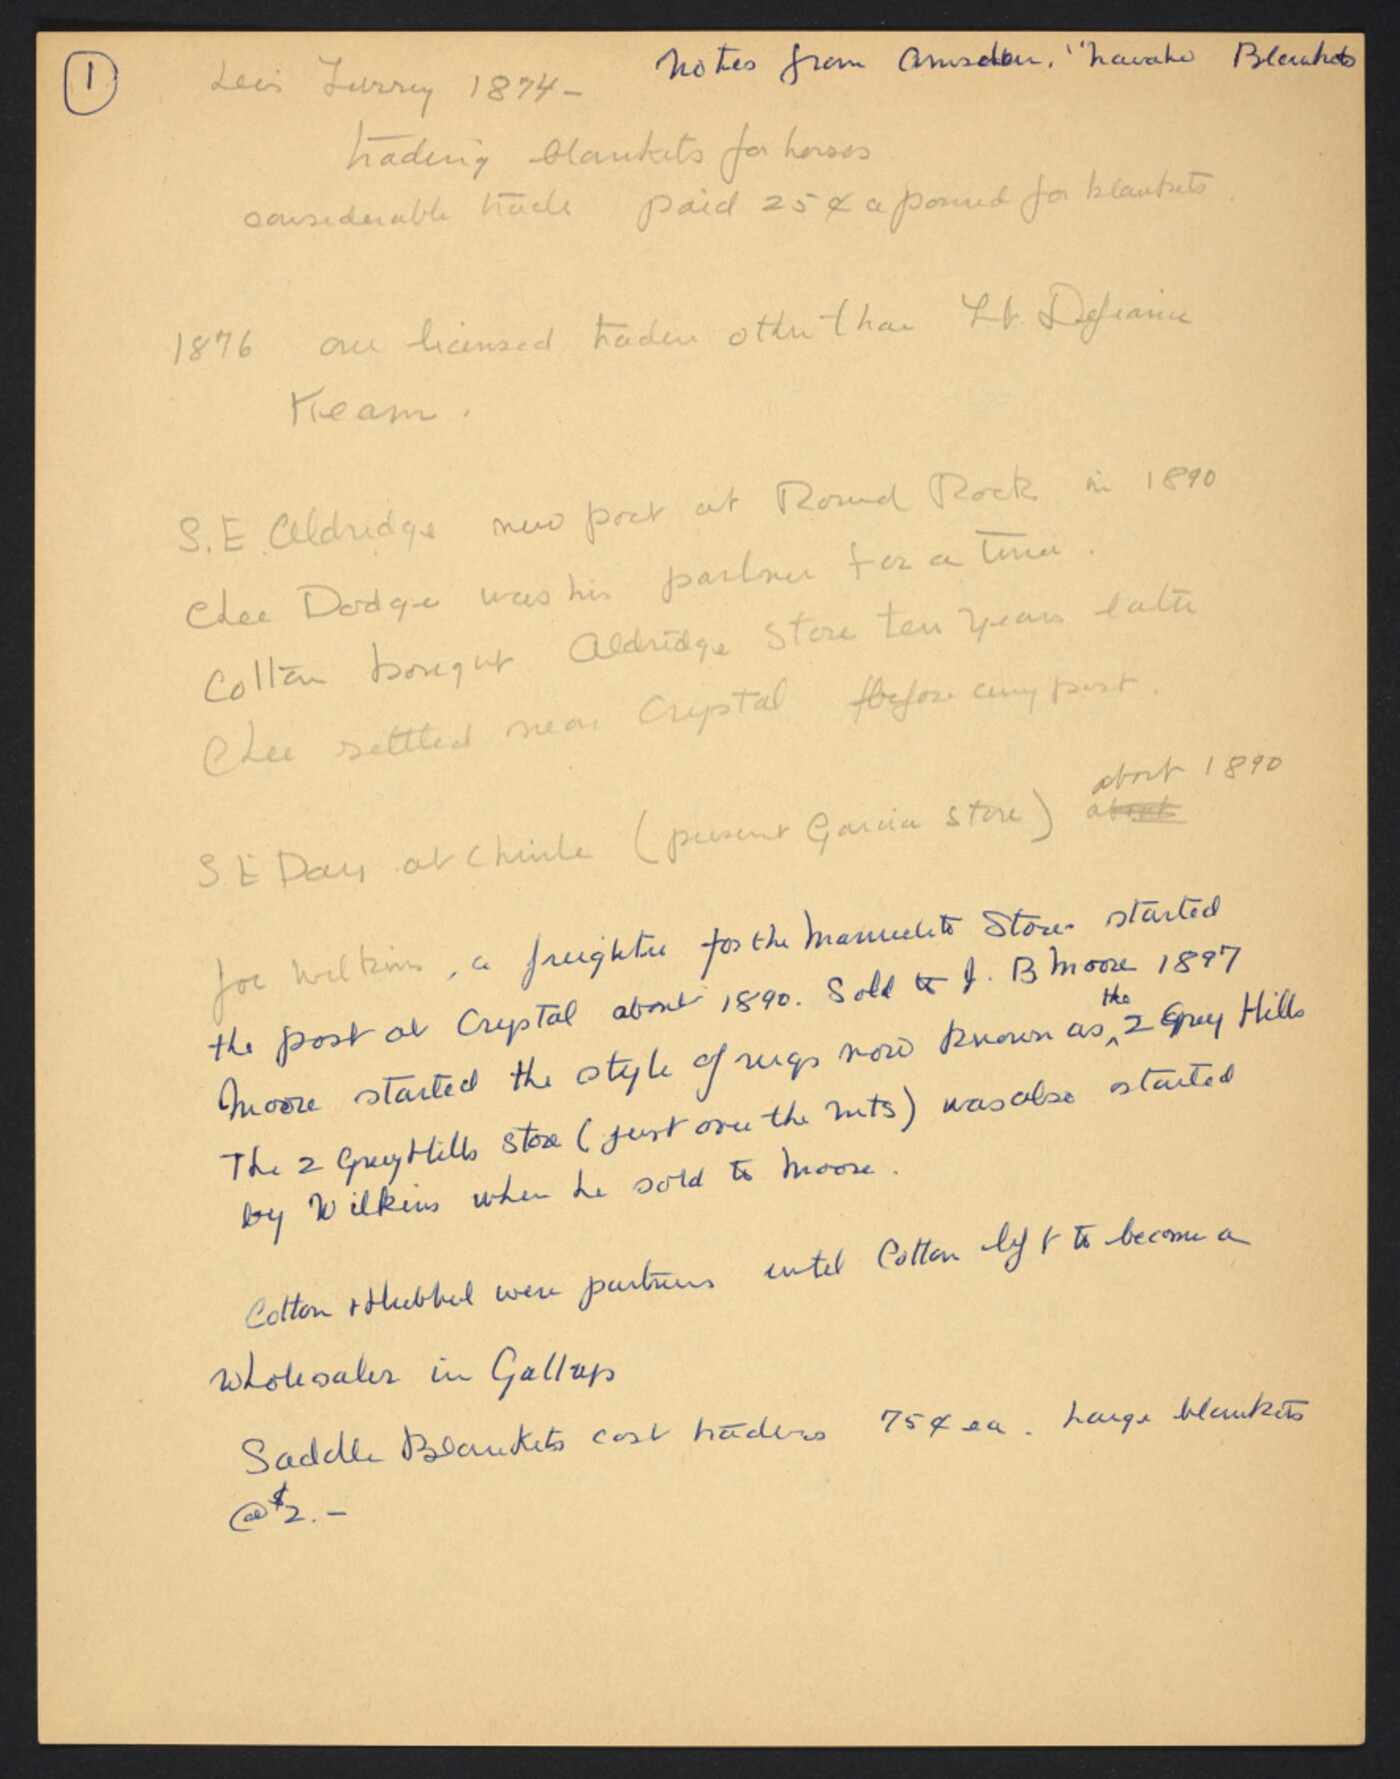 1
Notes from Amsden, "Navaho Blankets
Lees Ferry 1874 –
trading blankets for horses
considerable trade paid 25¢ a pound for blankets.
1876 one licensed trader other than Ft. Defiance
Keam.
S.E. Aldridge new post at Round Rock in 1890
Chee Dodge was his partner for a time.
Cotton bought Aldridge Store ten years later
Chee settled near Crystal before any post.
about 1890
S E Day at Chinle (present Garcia Store) about
Joe Wilkins, a freighter for the Manuelito Store started
the post at Crystal about 1890. Sold to J. B Moore 1897
Moore started the style of rugs now known as the 2 Grey Hills
The 2 Grey Hills Store (just over the mts) was also started
by Wilkins when he sold to Moore.
Cotton + Hubbel were partners until Cotton left to become a
wholesaler in Gallup
Saddle Blankets cost traders 75¢ ea. Large blankets
@ $2. –